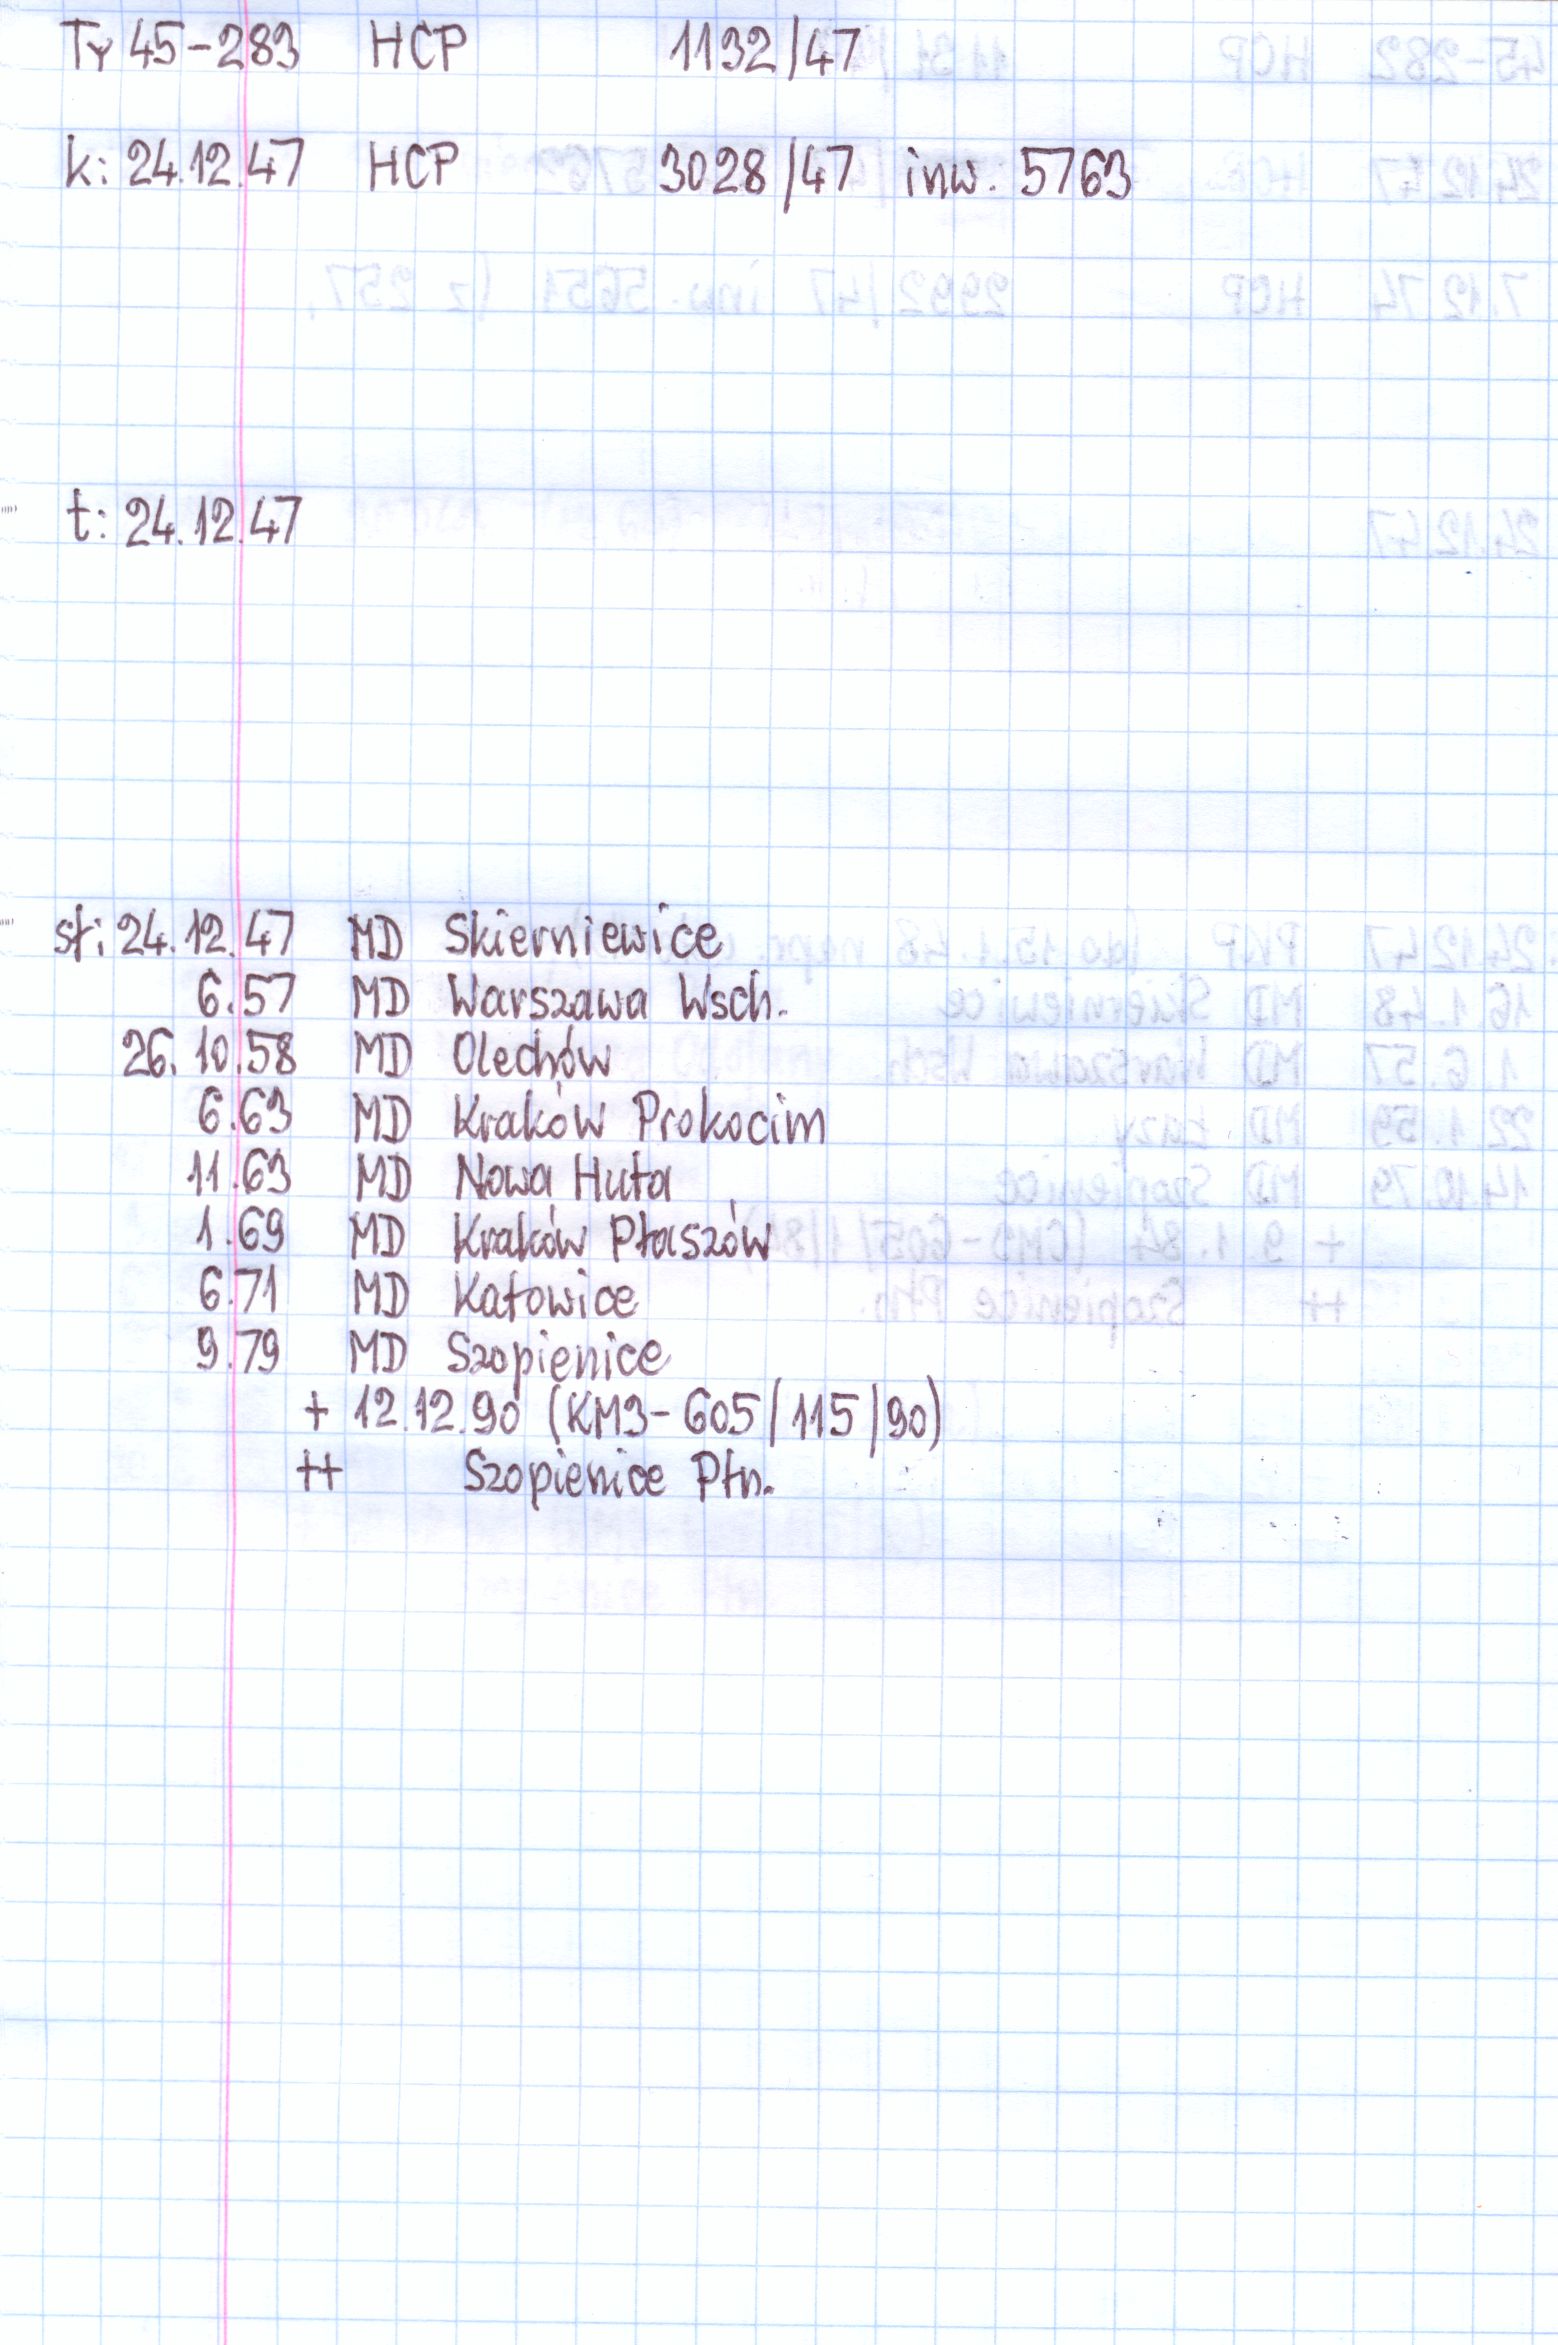 Ty 45-283 HCP 1132/47
k: 24.12.47 HCP 3028/47 inw. 5763
t: 24.12.47
st: 24.12.47 MD Skierniewice
6.57 MD Warszawa Wsch.
26.10.58 MD Olechów
6.63 MD Kraków Prokocim
11.63 MD Nowa Huta
1.69 MD Kraków Płaszów
6.71 MD Katowice
9.79 MD Szopienice
+ 12.12.90 (KM3-605/115/90)
++ Szopienice Płn.